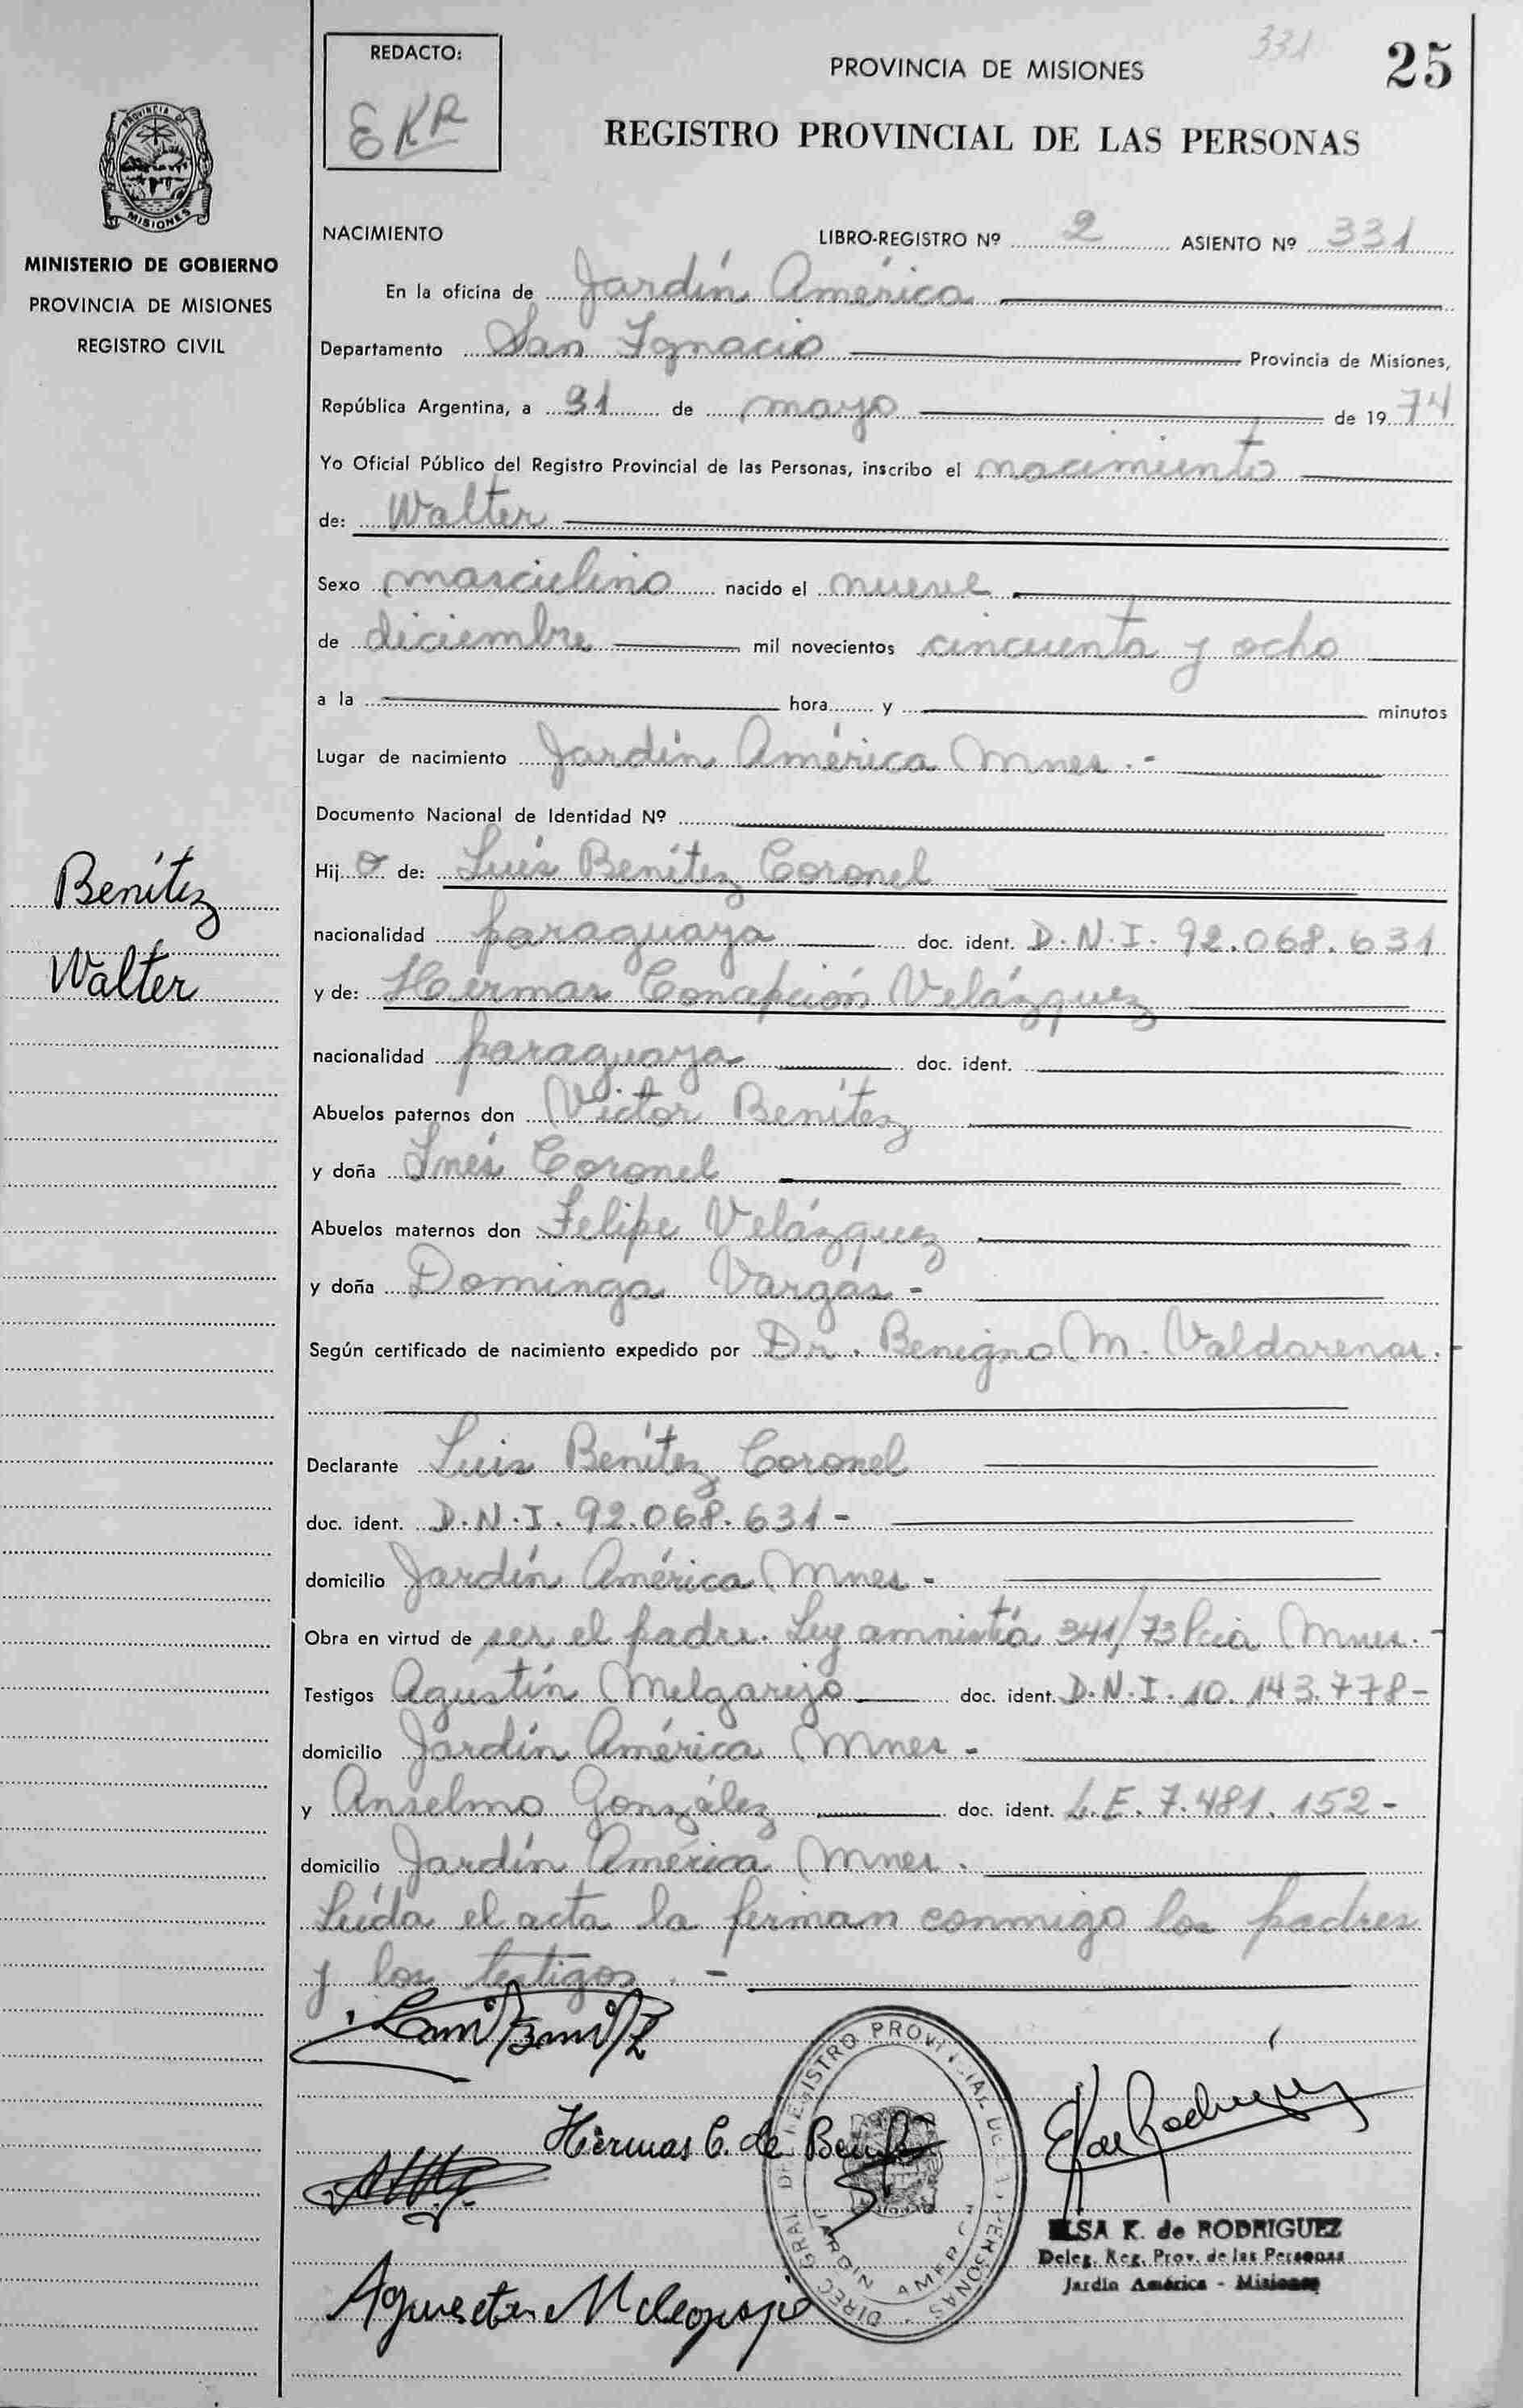 REDACTO:
EKR
PROVINCIA DE MISIONES
331
25
REGISTRO PROVINCIAL DE LAS PERSONAS
PROVINCIA DE
MISIONES
MINISTERIO DE GOBIERNO
PROVINCIA DE MISIONES
REGISTRO CIVIL
NACIMIENTO LIBRO-REGISTRO Nº 2 ASIENTO Nº 331
En la oficina de Jardín América
Departamento San Ignacio Provincia de Misiones,
República Argentina, a 31 de mayo de 1974
Yo Oficial Público del Registro Provincial de las Personas, inscribo el nacimiento
de: Walter
Sexo masculino nacido el nueve
de diciembre mil novecientos cincuenta y ocho
a la hora y minutos
Lugar de nacimiento Jardín América Mnes.-
Documento Nacional de Identidad Nº
Benítez
Walter
Hijo de: Luis Benítez Coronel
nacionalidad paraguaya doc. ident. D.N.I. 92.068.631
y de: Hermas Concepción Velázquez
nacionalidad paraguaya doc. ident.
Abuelos paternos don Víctor Benítez
y doña Inés Coronel
Abuelos maternos don Felipe Velázquez
y doña Dominga Vargas -
Según certificado de nacimiento expedido por Dr. Benigno M. Valdarenas.-
Declarante Luis Benítez Coronel
doc. ident. D.N.I. 92.068.631-
domicilio Jardín América Mnes -
Obra en virtud de ser el padre. Ley amnistía 341/73 Pcia Mnes.-
Testigos Agustín Melgarejo doc. ident. D.N.I. 10.143.778-
domicilio Jardín América Mnes -
y Anselmo González doc. ident. L.E. 7.481.152-
domicilio Jardín América Mnes.
Leída el acta la firman conmigo los padres
y los testigos. -
Hermas C. de Benítez
DIREC. GRAL. DEL REGISTRO PROVINCIAL DE LAS PERSONAS
JARDIN AMERICA
ELSA K. de RODRIGUEZ
Deleg. Reg. Prov. de las Personas
Jardín América - Misiones